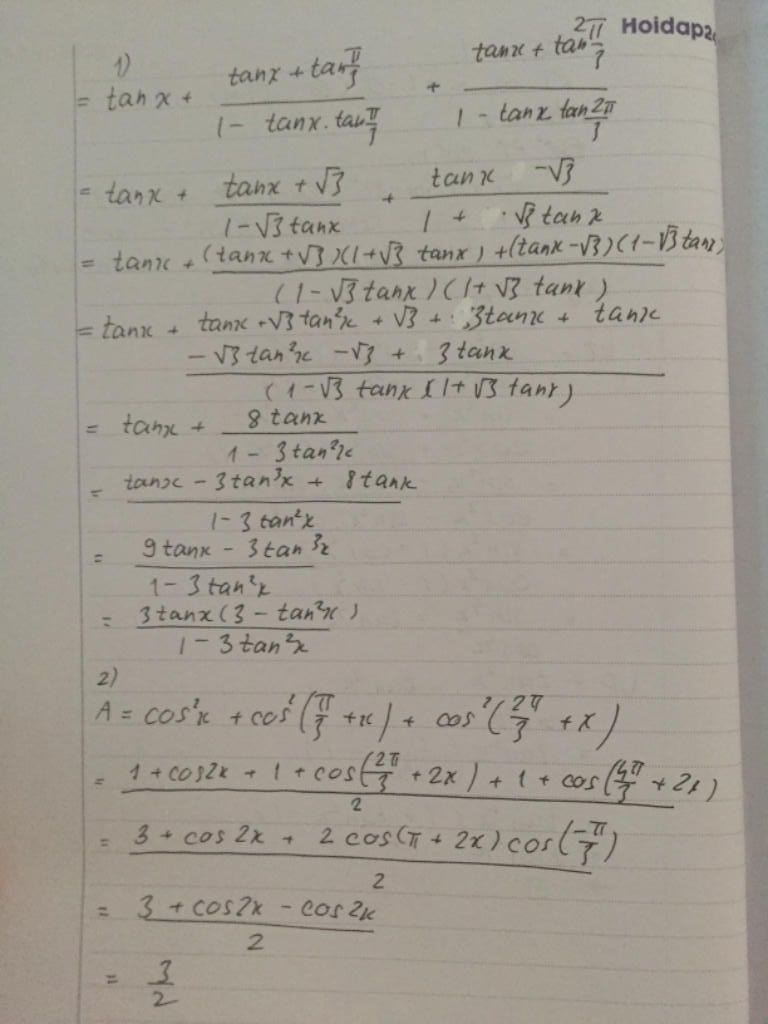 Hoidap2
1)
= tanx + (tanx + tan π/3)/(1 - tanx.tan π/3) + (tanx + tan 2π/3)/(1 - tanx tan 2π/3)
= tanx + (tanx + √3)/(1-√3 tanx) + (tanx -√3)/(1 + √3 tanx)
= tanx + ((tanx+√3)(1+√3 tanx) + (tanx-√3)(1-√3 tanx))/((1-√3 tanx)(1+√3 tanx))
= tanx + (tanx + √3 tan²x + √3 + 3tanx + tanx
- √3 tan²x - √3 + 3tanx)/((1-√3 tanx)(1+√3 tanx))
= tanx + (8tanx)/(1 - 3tan²x)
= (tanx - 3tan³x + 8tanx)/(1-3tan²x)
= (9tanx - 3tan³x)/(1-3tan²x)
= (3tanx(3 - tan²x))/(1-3tan²x)
2)
A = cos²x + cos²(π/3 + x) + cos²(2π/3 + x)
= (1+cos2x + 1 + cos(2π/3 + 2x) + 1 + cos(4π/3 + 2x))/2
= (3 + cos2x + 2cos(π + 2x)cos(-π/3))/2
= (3 + cos2x - cos2x)/2
= 3/2